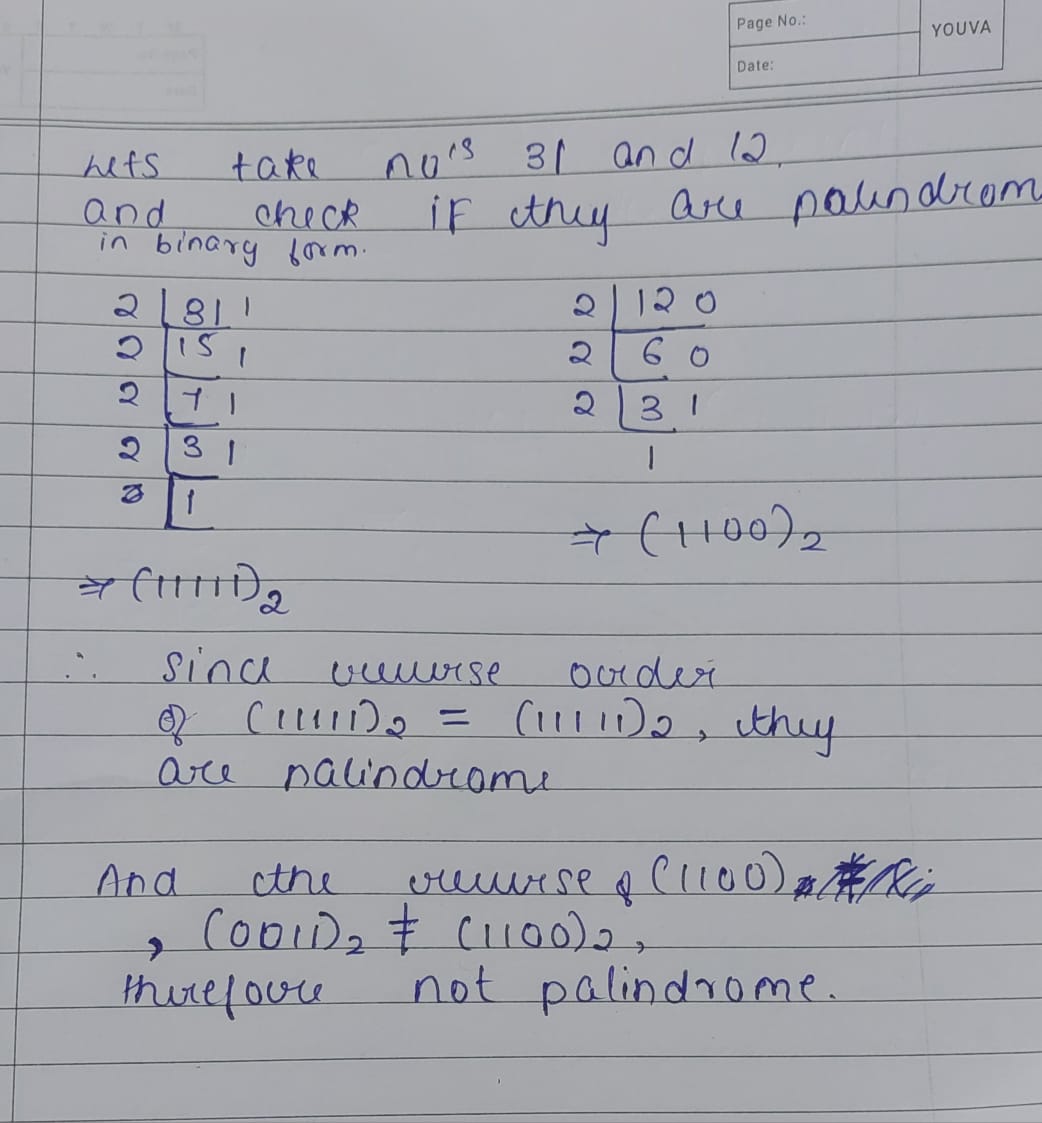 Page No.:
YOUVA
Date:
Lets take no's 31 and 12.
and check if they are palindrom
in binary form.
2 31 1
2 15 1
2 7 1
2 3 1
1
2 12 0
2 6 0
2 3 1
1
⇒ (1100)2
⇒ (11111)2
∴ Since reverse order
of (11111)2 = (11111)2, they
are palindrome
And the reverse of (1100)
, (0011)2 ≠ (1100)2,
therefore not palindrome.